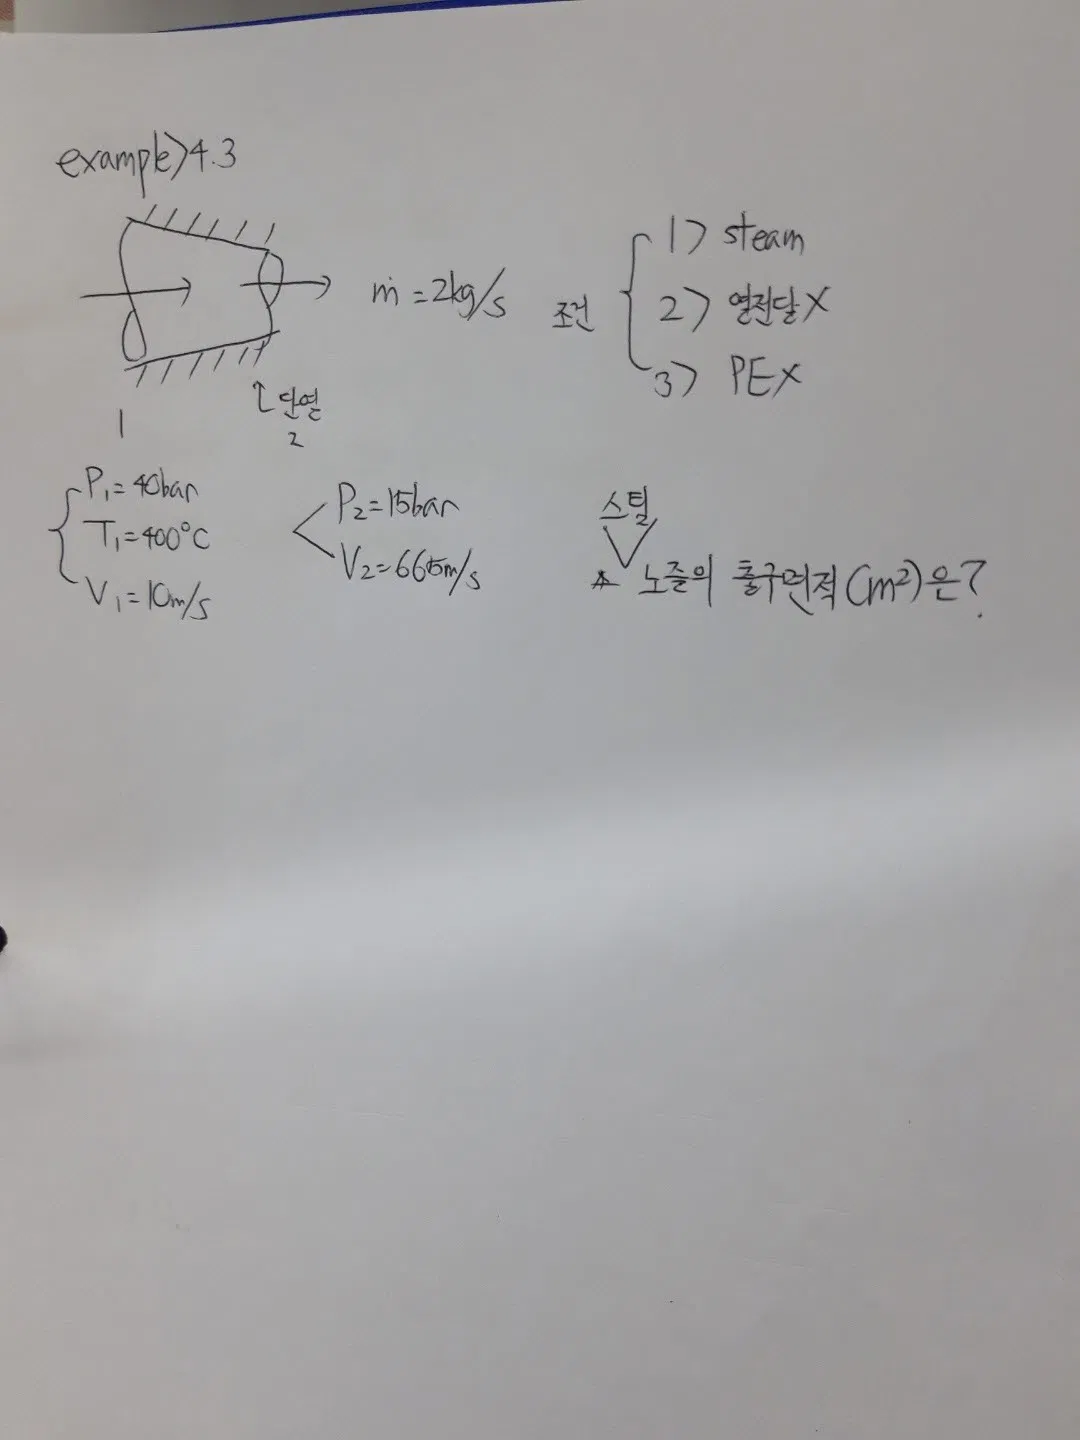 example>4.3
ṁ=2kg/s
조건
1> steam
2> 열전달X
3> PEX
↑단열
1
2
P₁=40bar
T₁=400°C
V₁=10m/s
P₂=15bar
V₂=665m/s
스팀
노즐의 출구면적(m²)은?